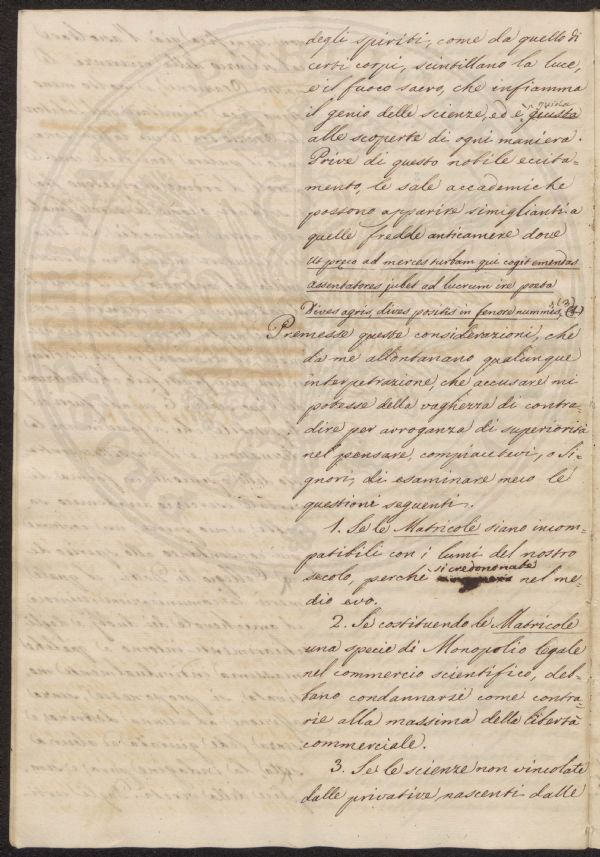 degli spiriti, come da quello di
certi corpi, scintillano la luce,
e il fuoco sacro, che infiamma
il genio delle scienze, ed è guida
giusta
alle scoperte di ogni maniera.
Prive di questo nobile eccita-
mento, le sale accademiche
possono apparire simiglianti a
quelle fredde anticamere dove
Ut præco ad merces turbam qui cogit emendas
Assentatores jubet ad lucrum ire poeta
Dives agris, dives positis in fenore nummis.
Premesse queste considerazioni, che
da me allontanano qualunque
interpetrazione, che accusare mi
potesse della vaghezza di contra-
dire per arroganza di superiorità
nel pensare, compiacetevi, o Si-
gnori, di esaminare meco le
questioni seguenti.
1. Se le Matricole siano incom-
patibili con i lumi del nostro
secolo, perchè si credono nate nel me-
dio evo.
2. Se costituendo le Matricole
una specie di Monopolio legale
nel commercio scientifico, deb-
bano condannarsi come contra-
rie alla massima della libertà
commerciale.
3. Se le scienze non vincolate
dalle privative, nascenti dalle